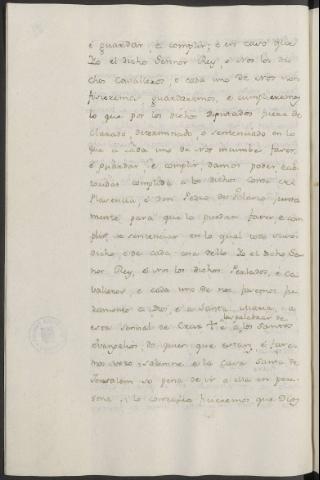 e guardar, e complir, e en caso que
Yo el dicho Señor Rey, e Nos los di-
chos Cavalleros, e cada uno de Nos non
ficieremos, guardaremos, e cumpliremos
lo que por los dichos Diputados fuere de-
clarado, determinado, o sentenciado en lo
que a cada uno de Nos incumbe facer,
e guardar, e complir, damos poder, e au-
toridad complida a los dichos Conde de
Plasencia, e Don Pedro de Velasco junta-
mente para que lo puedan facer e com-
plir, e sentenciar en lo qual todo suso
dicho, e de cada cosa dello Yo el dicho Se-
ñor Rey, e Nos los dichos Perlados, e Ca-
valleros, e cada uno de nos facemos ju-
ramento a Dios, e a Santa Maria, e a
esta señal de Cruz † e a las palabras de los Santos
evangelios, do quier que estan, e face-
mos voto solemne a la Casa Santa de
Jerusalem so pena de ir a ella en per-
sona, si lo contrario ficieremos que Dios